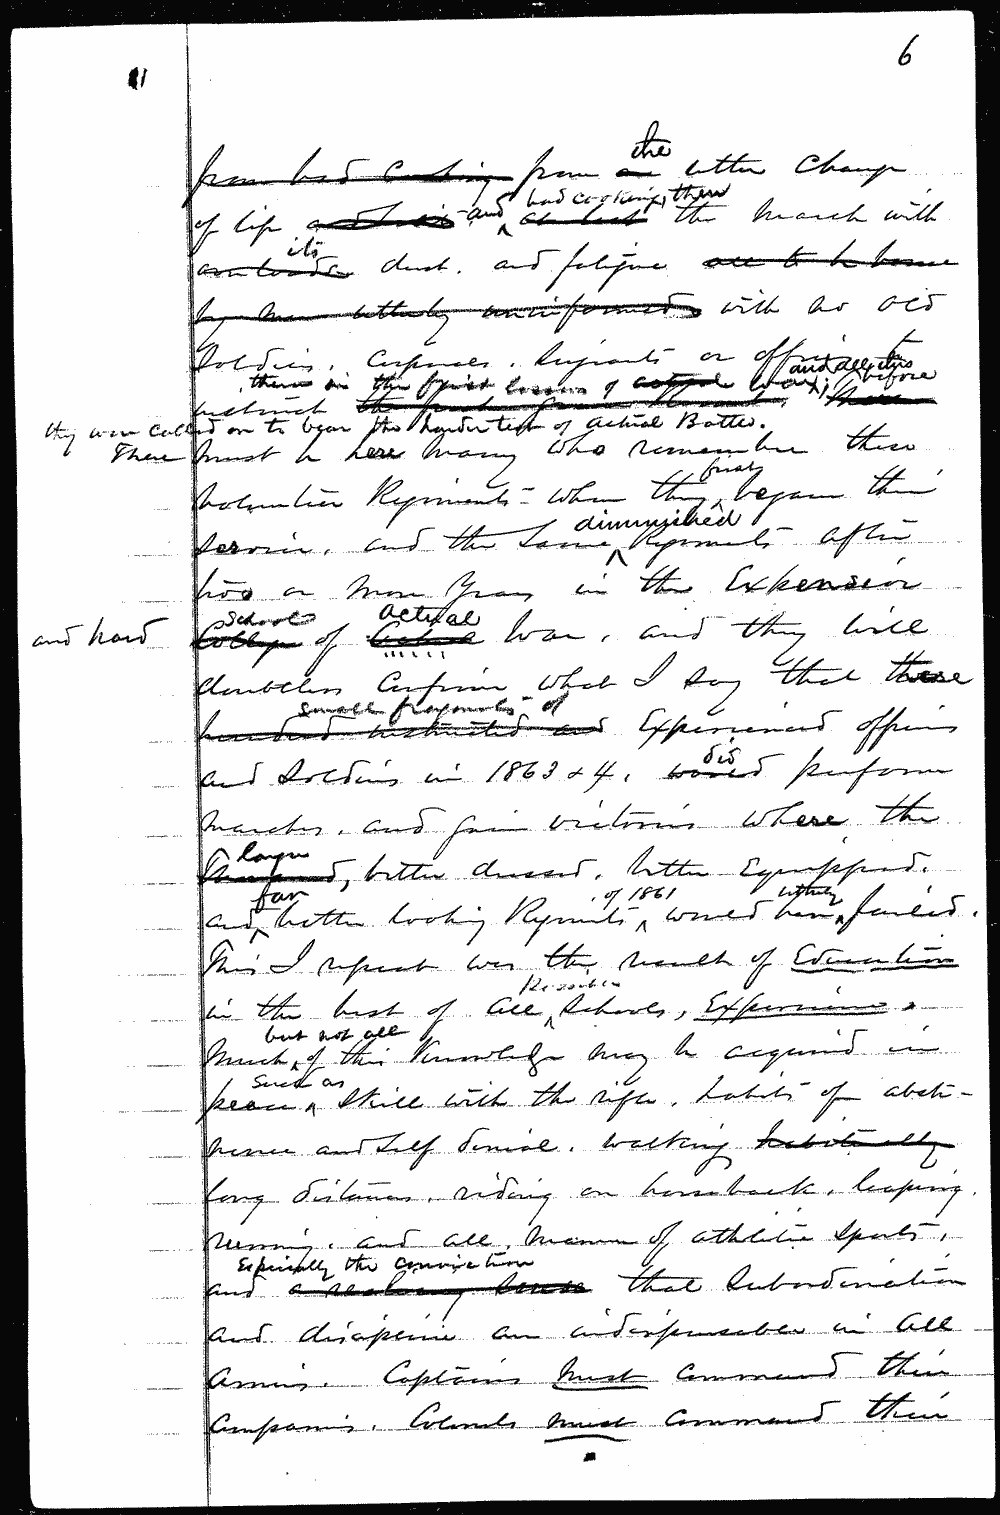 6
the
from bad cooking from an utter change
bad cooking, then
of life and at last the March with
its
dust, and fatigue all to be borne
by men utterly uninformed with no old
Soldiers, Corporals, Sergeants or officers to
them in the first lessons of actual war; and all this before
instruct
they were called on to bear the harder test of actual Battle.
There must be here many who remember these
firstly
Volunteer Regiments when they began their
diminished
service, and the same Regiments after
two or more years in the Expensive
and hard
School actual
College of actual War, and they will
doubtless confirm what I say that these
small fragments of
hundred instructed and Experienced officers
did
and Soldiers in 1863 & 4, would perform
marches, and gain victories where the
large
Thousand, better dressed, better Equipped,
far of 1861 utterly
and better looking Regiments would have failed.
This I repeat was the result of Education
in the best of all Schools, Experience.
but not all
Much of this Knowledge may be acquired in
such as
peace, Skill with the rifle, habits of absti-
nence and Self denial, walking habitually
long distances, riding on horseback, leaping,
running, and all manner of athletic Sports,
Especially the conviction
and a realizing sense that Subordination
and discipline are indispensable in all
Armies. Captains must command their
Companies, Colonels must command their